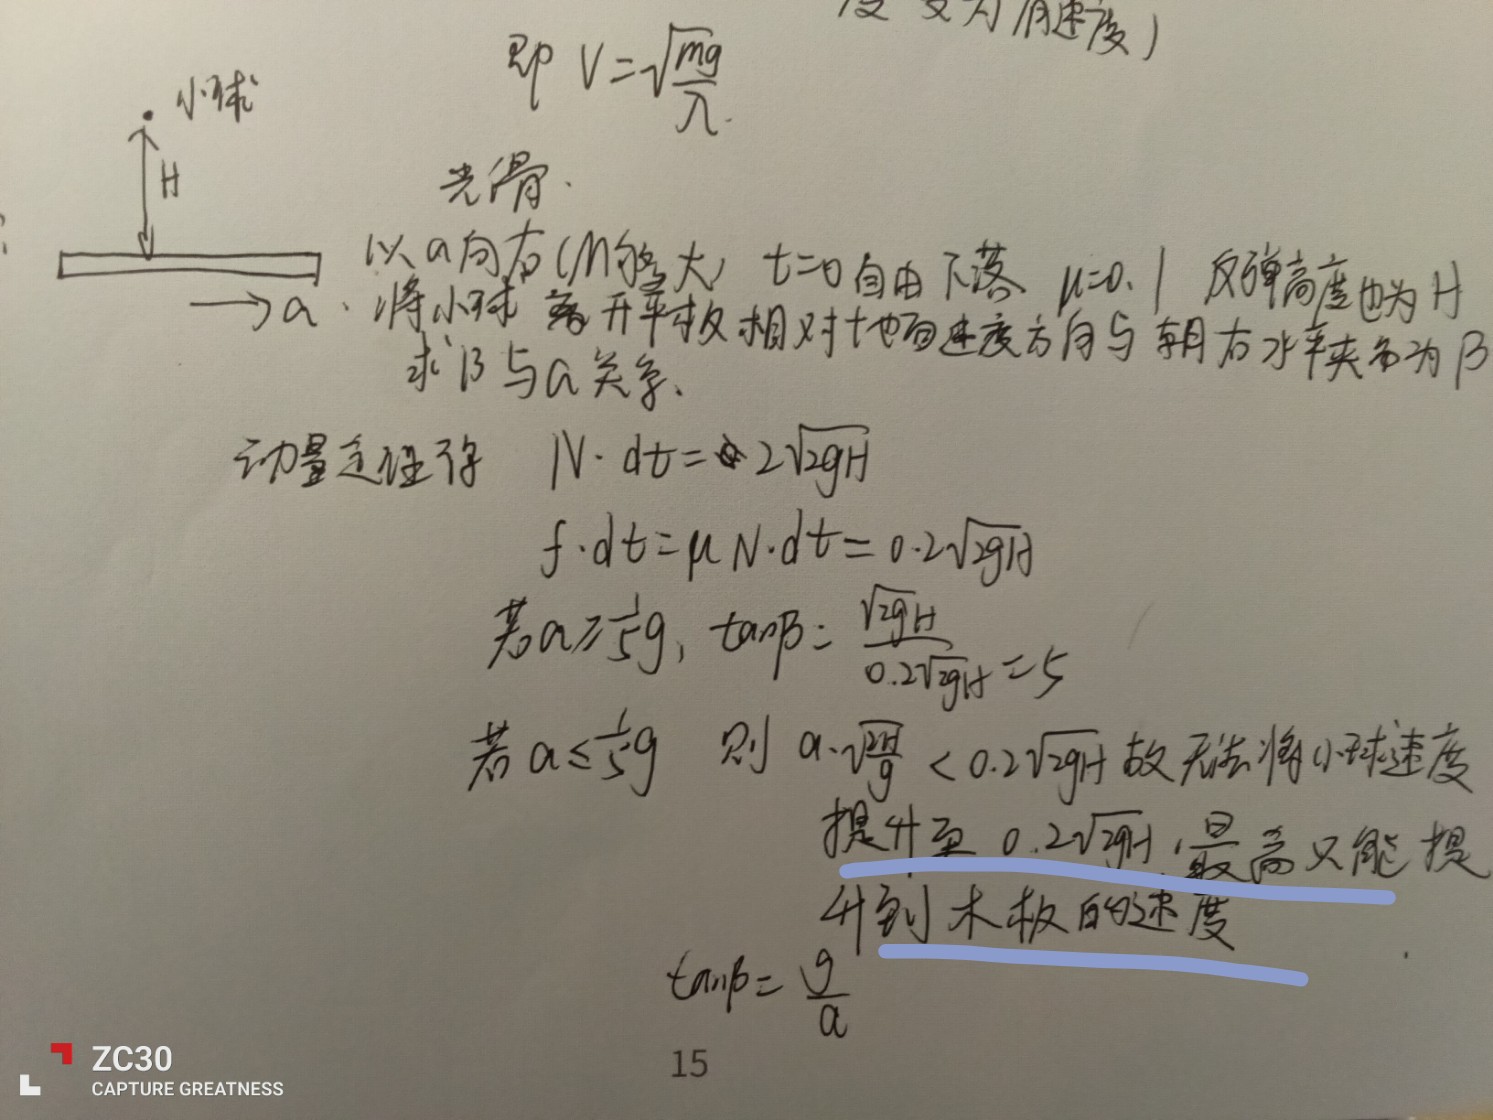 度变为有速度)
即 V=√(mg/λ).
小球
H
光滑.
以a向右(M够大) t=0自由下落 μ=0.1 反弹高度也为H
→a.将小球离开平板相对地面速度方向与朝右水平夹角为β
求β与a关系.
动量定理得 N·dt=2√2gH
f·dt=μN·dt=0.2√2gH
若a≥1/5g, tanβ=√2gH/0.2√2gH=5
若a≤1/5g 则a·√(2H/g)<0.2√2gH故无法将小球速度
提升至0.2√2gH,最高只能提
升到木板的速度
tanβ=g/a
15
ZC30
CAPTURE GREATNESS